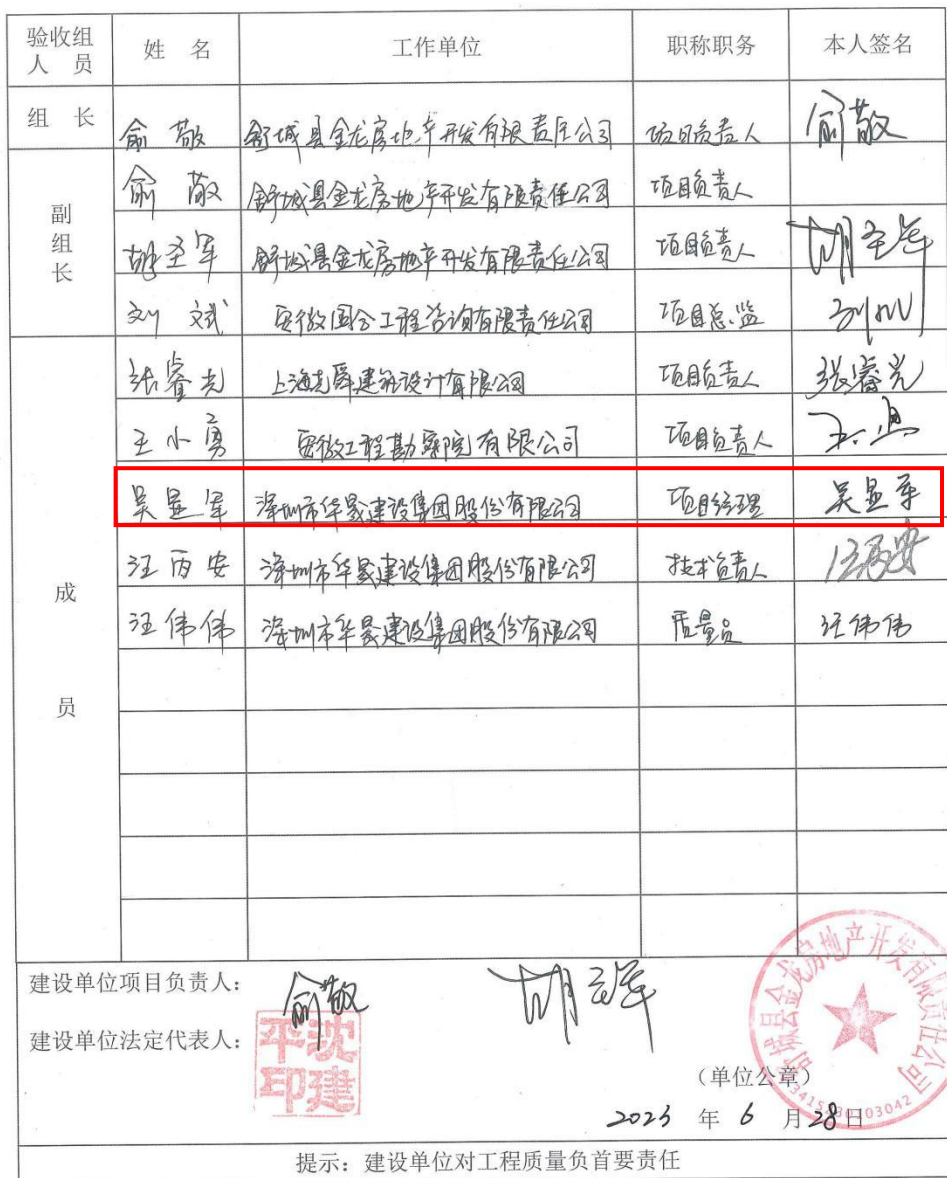 验收组人员 姓 名 工作单位 职称职务 本人签名
组 长 俞敬 舒城县金龙房地产开发有限责任公司 项目负责人 俞敬
副组长 俞敬 舒城县金龙房地产开发有限责任公司 项目负责人
胡圣军 舒城县金龙房地产开发有限责任公司 项目负责人 胡圣军
刘斌 安徽国合工程咨询有限责任公司 项目总监
成员 张睿光 上海尧舜建筑设计有限公司 项目负责人 张睿光
王小勇 安徽工程勘察院有限公司 项目负责人
吴显军 深圳市华晟建设集团股份有限公司 项目经理 吴显军
汪丙安 深圳市华晟建设集团股份有限公司 技术负责人 汪丙安
汪伟伟 深圳市华晟建设集团股份有限公司 质量员 汪伟伟
建设单位项目负责人: 俞敬 胡圣军
建设单位法定代表人: 沈建平印
舒城县金龙房地产开发有限责任公司
(单位公章)
2023 年 6 月 28 日
提示:建设单位对工程质量负首要责任